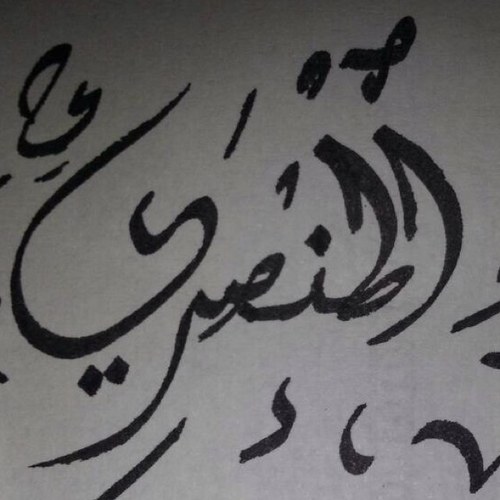 المنصري